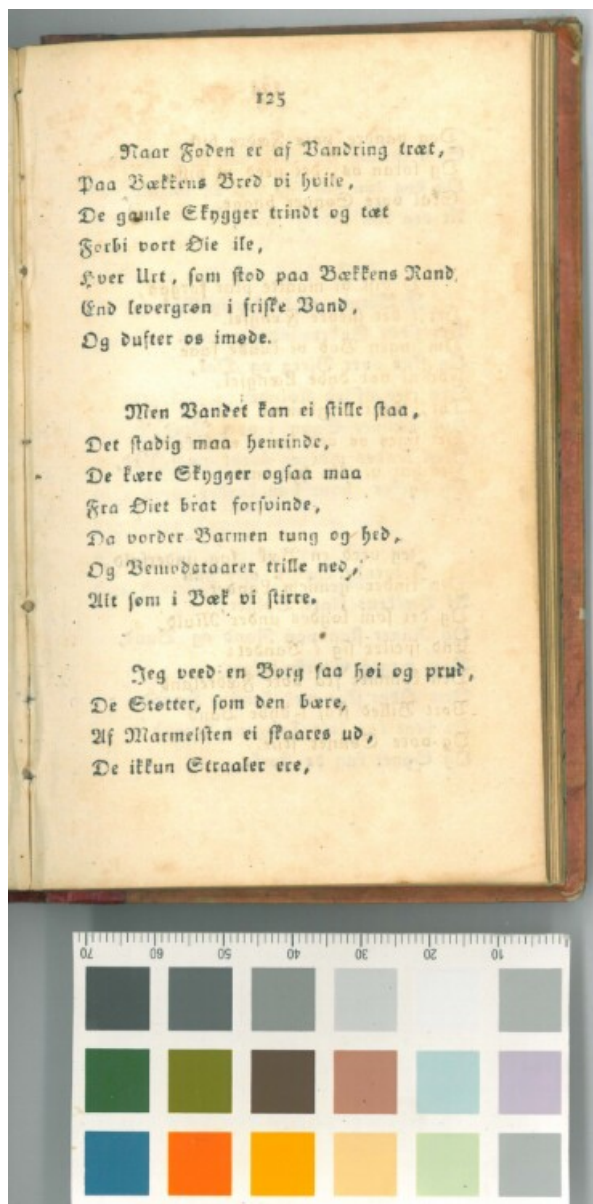 125
Naar Foden er af Vandring træt,
Paa Bækkens Bred vi hvile,
De gamle Skygger trindt og tæt
Forbi vort Øie ile,
Hver Urt, som stod paa Bækkens Rand,
End levergrøn i friske Vand,
Og dufter os imøde.
Men Vandet kan ei stille staa,
Det stadig maa henrinde,
De kære Skygger ogsaa maa
Fra Øiet brat forsvinde,
Da vorder Barmen tung og hed,
Og Vemodstaarer trille ned,
Alt som i Bæk vi stirre.
Jeg veed en Borg saa høi og prud,
De Støtter, som den bære,
Af Marmelsten ei skaares ud,
De ikkun Straaler ere,
70 60 50 40 30 20 10